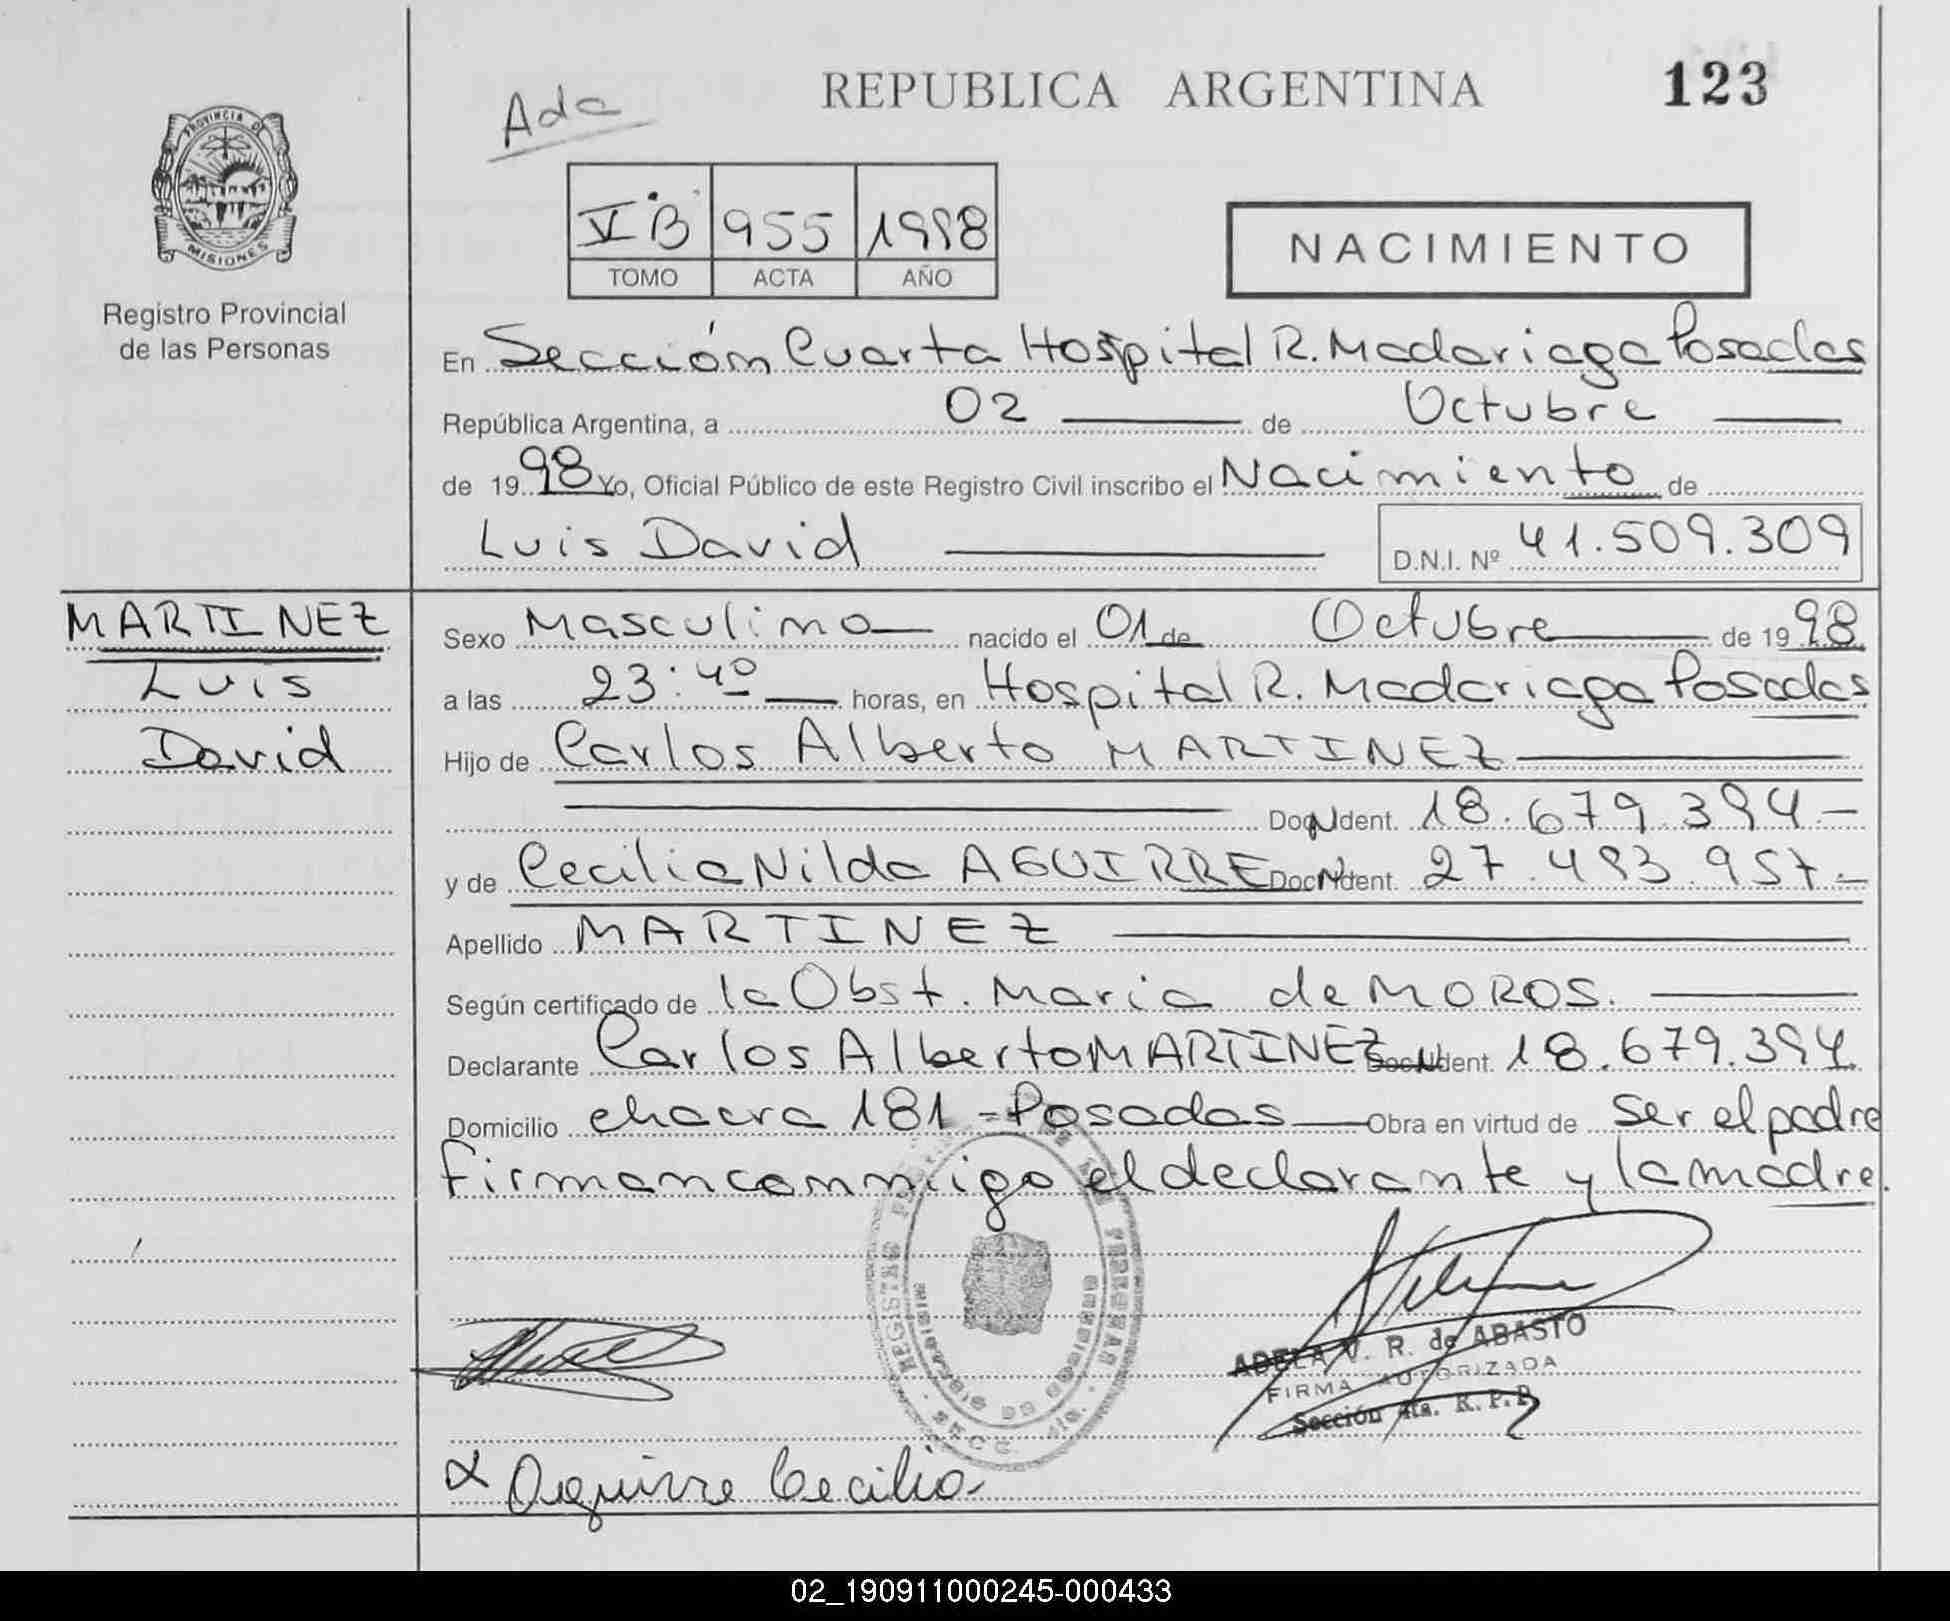 Ada
REPUBLICA ARGENTINA
123
PROVINCIA DE
MISIONES
Registro Provincial
de las Personas
V B 955 1998
TOMO ACTA AÑO
NACIMIENTO
En Sección Cuarta Hospital R. Madariaga Posadas
República Argentina, a 02 de Octubre
de 1998 Yo, Oficial Público de este Registro Civil inscribo el Nacimiento de
Luis David D.N.I. Nº 41.509.309
MARTINEZ
Luis
David
Sexo Masculino nacido el 01 de Octubre de 1998
a las 23:40 horas, en Hospital R. Madariaga Posadas
Hijo de Carlos Alberto MARTINEZ
Doc. Ident. 18.679.394-
y de Cecilia Nilda AGUIRRE Doc. Ident. 27.493.957-
Apellido MARTINEZ
Según certificado de la Obst. Maria de MOROS.
Declarante Carlos Alberto MARTINEZ Doc. Ident. 18.679.394
Domicilio chacra 181 - Posadas Obra en virtud de ser el padre
Firman conmigo el declarante y la madre.
ADELA V. R. de ABASTO
FIRMA AUTORIZADA
Sección 4ta. R. P. P.
Aguirre Cecilia
02_190911000245-000433